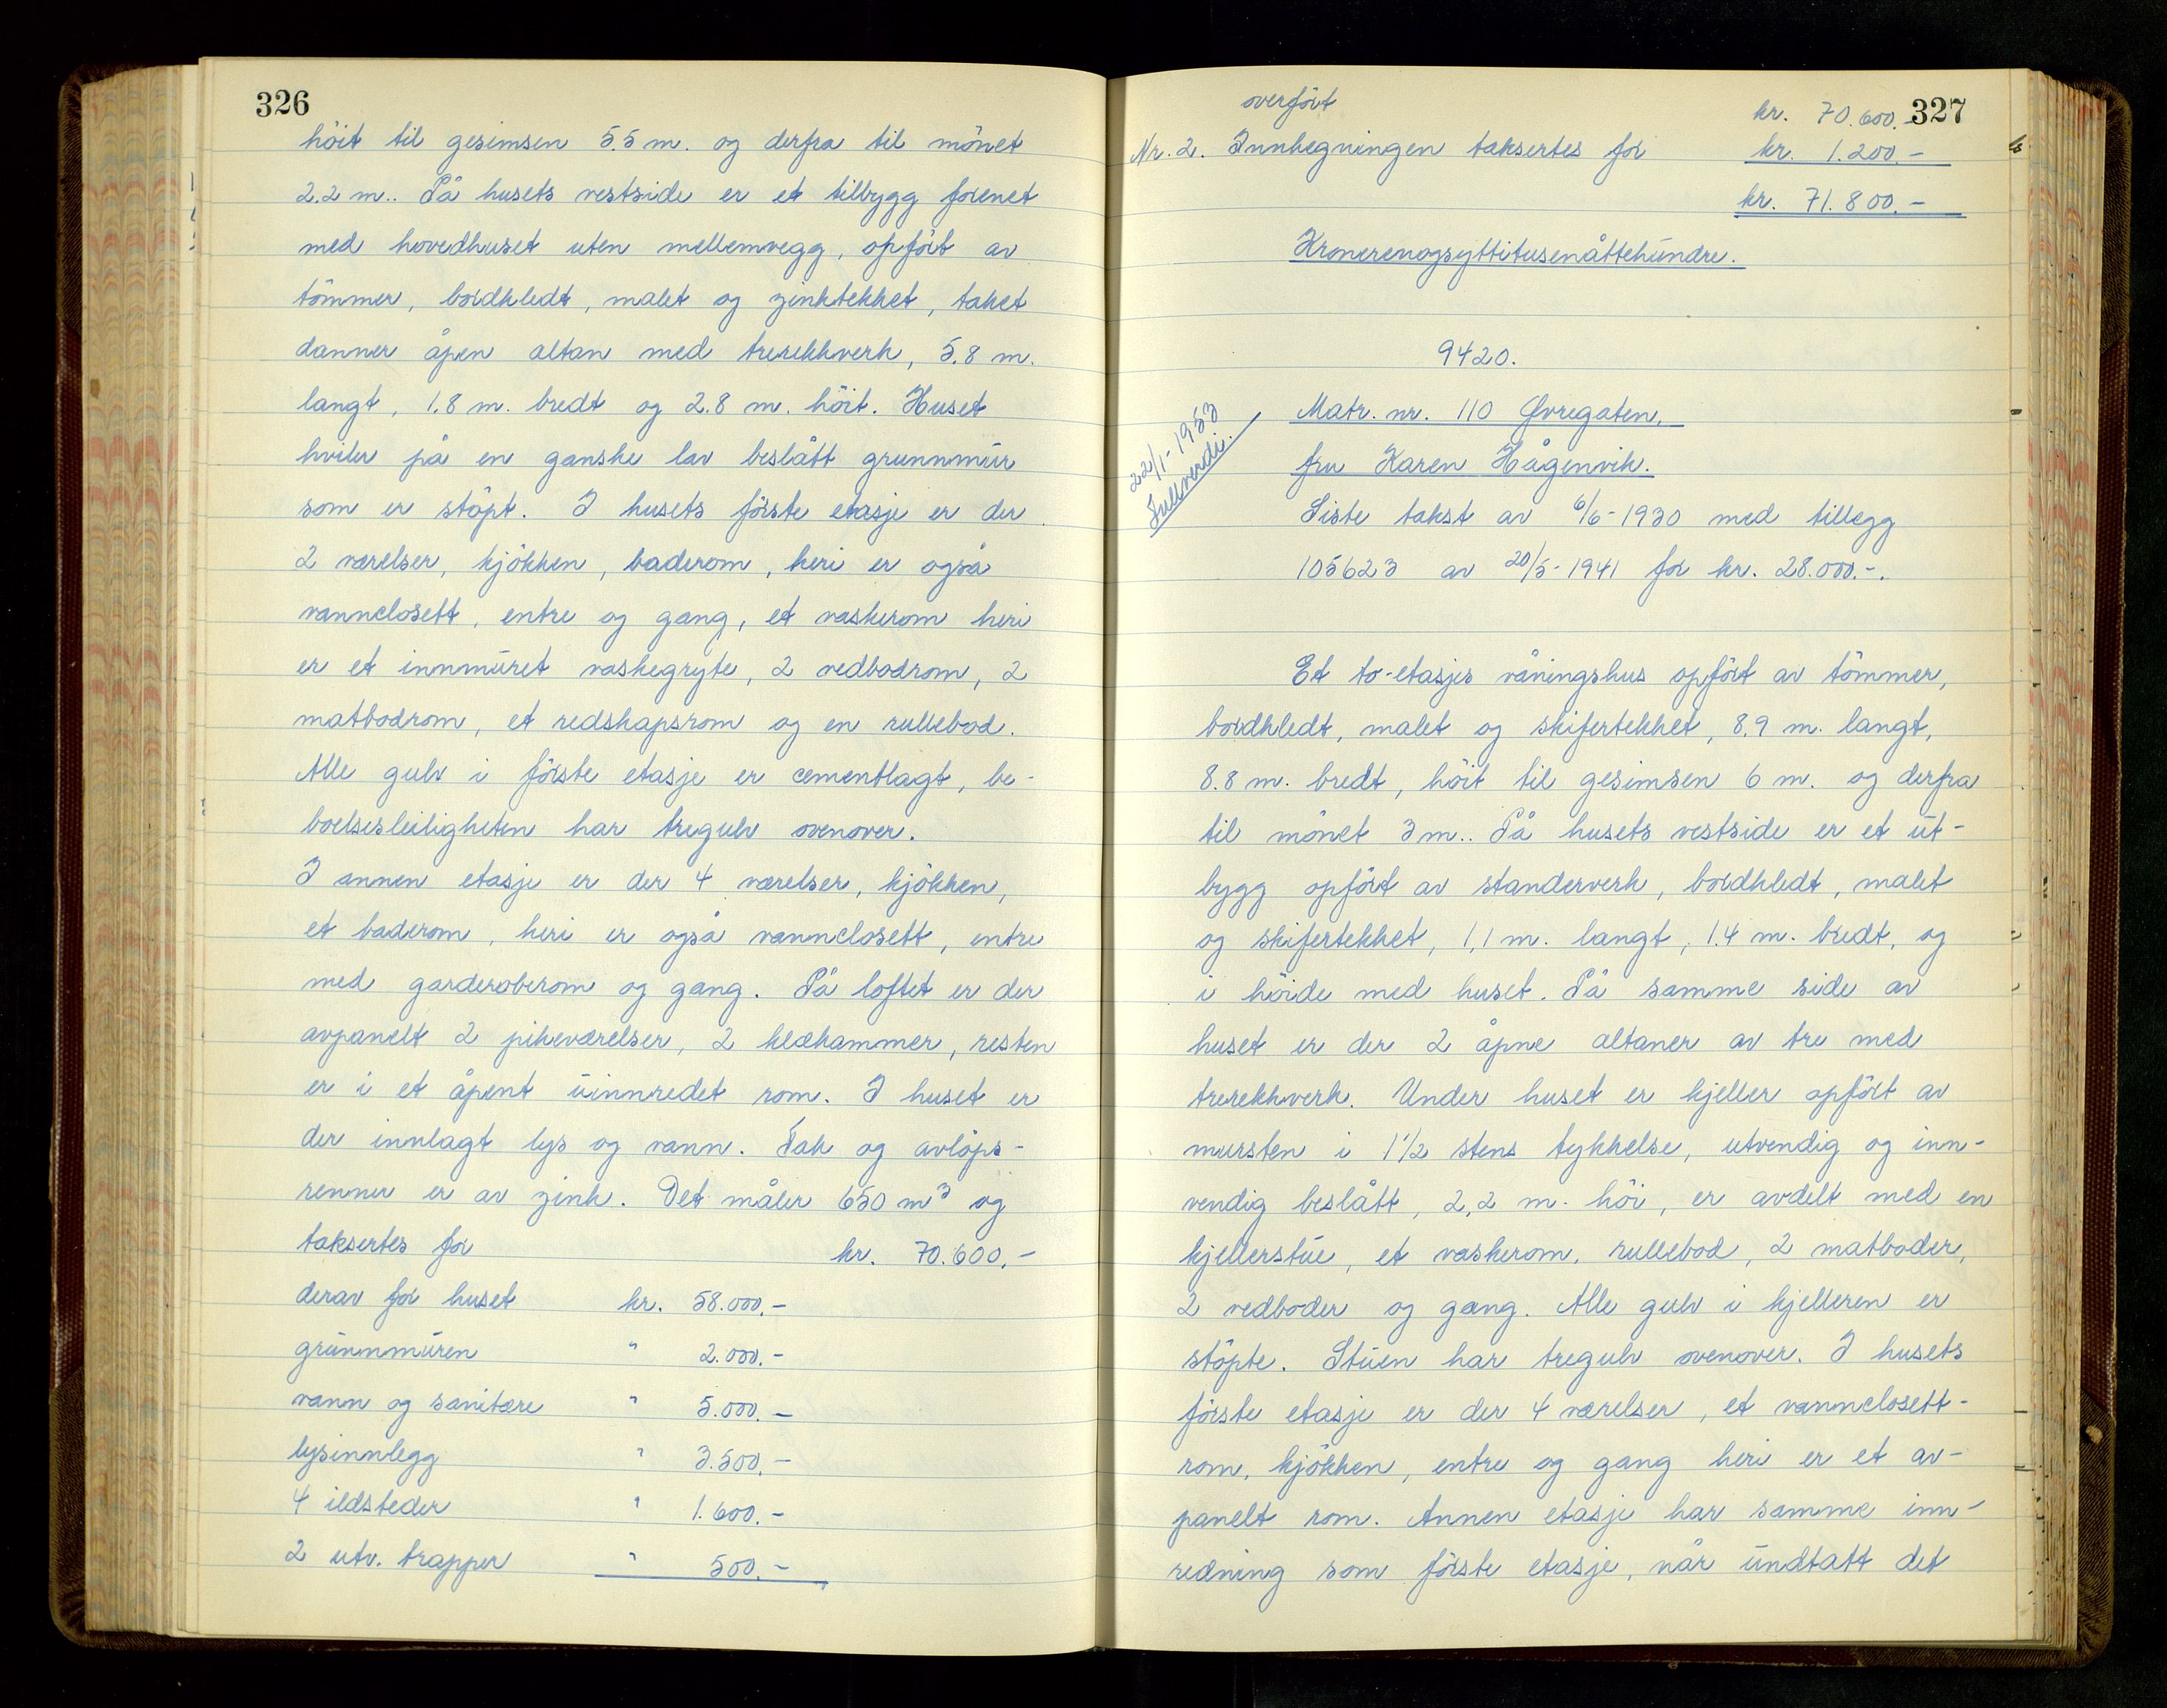 326
höit til gesimsen 5.5 m. og derfra til mönet
2.2 m.. På husets vestside er et tilbygg forenet
med hovedhuset uten mellemvegg, opfört av
tömmer, bordkledt, malet og zinktekket, taket
danner åpen altan med trerekkverk, 5.8 m.
langt, 1.8 m. bredt og 2.8 m. höit. Huset
hviler på en ganske lav beslått grunnmur
som er stöpt. I husets förste etasje er der
2 værelser, kjökken, baderom, heri er også
vannclosett, entre og gang, et vaskerom heri
er et innmuret vaskegryte, 2 vedbodrom, 2
matbodrom, et redskapsrom og en rullebod.
Alle gulv i förste etasje er cementlagt, be-
boelsesleiligheten har tregulv ovenover.
I annen etasje er der 4 værelser, kjökken,
et baderom, heri er også vannclosett, entre
med garderoberom og gang. På loftet er der
avpanelt 2 pikeværelser, 2 klækammer, resten
er i et åpent uinnredet rom. I huset er
der innlagt lys og vann. Tak og avlöps-
renner er av zink. Det måler 650 m³ og
taksertes for kr. 70.600.-
derav for huset kr. 58.000.-
grunnmuren " 2.000.-
vann og sanitære " 5.000.-
lysinnlegg " 3.500.-
4 ildsteder " 1.600.-
2 utv. trapper " 500.-
327
overfört kr. 70.600.-
Nr. 2. Innhegningen taksertes for kr. 1.200.-
kr. 71.800.-
Kronerenogsyttitusenåttehundre.
9420.
22/1-1953
Fullverdi.
Matr. nr. 110 Øvregaten,
fru Karen Hågenvik.
Siste takst av 6/6-1930 med tillegg
105623 av 20/5-1941 for kr. 28.000.-.
Et to-etasjes våningshus opfört av tömmer,
bordkledt, malet og skifertekket, 8.9 m. langt,
8.8 m. bredt, höit til gesimsen 6 m. og derfra
til mönet 3 m.. På husets vestside er et ut-
bygg opfört av standerverk, bordkledt, malet
og skifertekket, 1,1 m. langt, 1.4 m. bredt, og
i höide med huset. På samme side av
huset er der 2 åpne altaner av tre med
trerekkverk. Under huset er kjeller opfört av
mursten i 1 1/2 stens tykkelse, utvendig og inn-
vendig beslått, 2,2 m. höi, er avdelt med en
kjellerstue, et vaskerom, rullebod, 2 matboder,
2 vedboder og gang. Alle gulv i kjelleren er
stöpte. Stuen har tregulv ovenover. I husets
förste etasje er der 4 værelser, et vannclosett-
rom, kjökken, entre og gang heri er et av-
panelt rom. Annen etasje har samme inn-
redning som förste etasje, når undtatt det